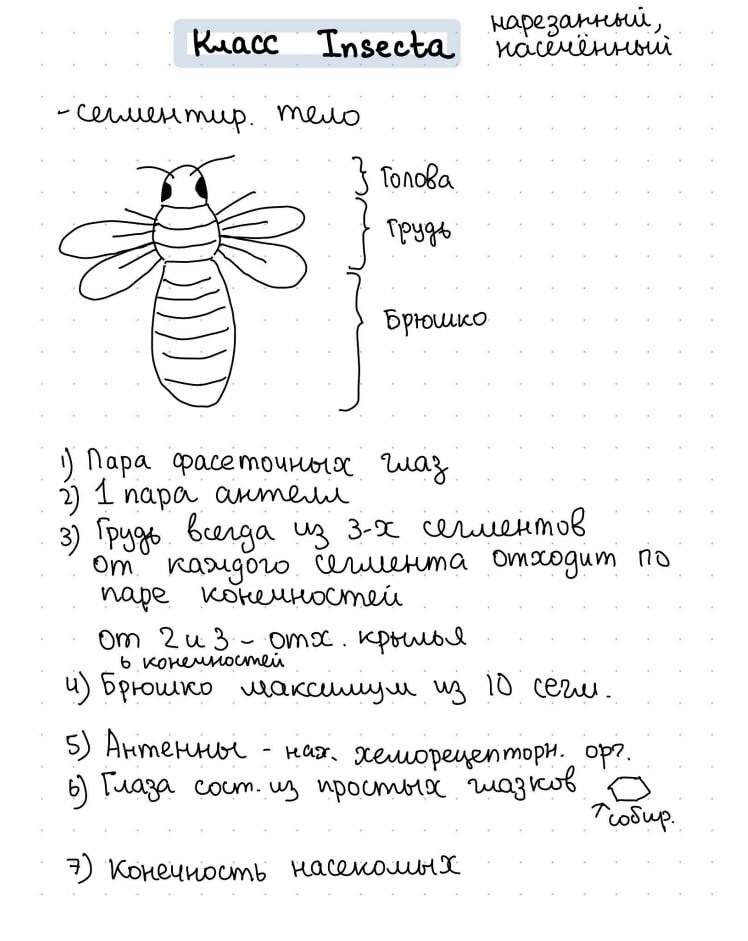 Класс Insecta
нарезанный,
насечённый
- сегментир. тело
Голова
Грудь
Брюшко
1) Пара фасеточных глаз
2) 1 пара антенн
3) Грудь всегда из 3-х сегментов
от каждого сегмента отходит по
паре конечностей
от 2 и 3 - отх. крылья
6 конечностей
4) Брюшко максимум из 10 сегм.
5) Антенны - нах. хеморецепторн. орг.
6) Глаза сост. из простых глазков
собир.
7) Конечность насекомых